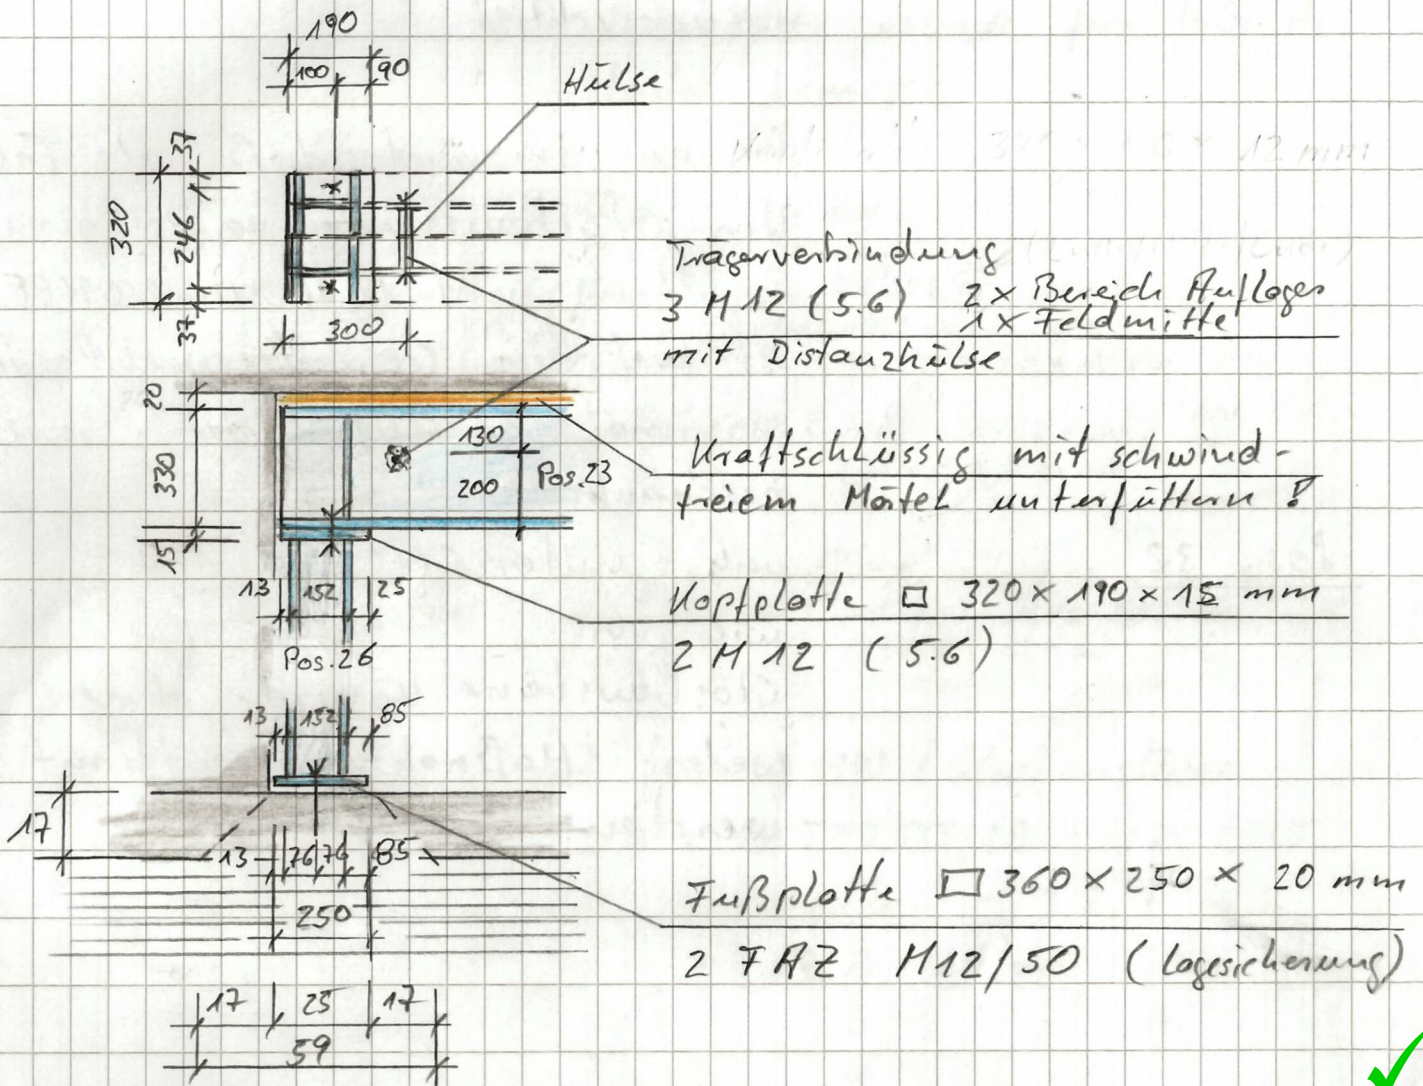 190
100 90
Hülse
37
320
246
37
300
Trägerverbindung
3 M12 (5.6) 2x Bereich Auflager
1x Feldmitte
mit Distanzhülse
20
330
15
130
200
Pos.23
Kraftschlüssig mit schwind-
freiem Mörtel unterfüttern !
13 152 25
Kopfplatte □ 320 x 190 x 15 mm
2 M12 (5.6)
Pos.26
13 152 85
17
13 76 76 85
250
Fußplatte □ 360 x 250 x 20 mm
2 FAZ M12/50 (Lagesicherung)
17 25 17
59